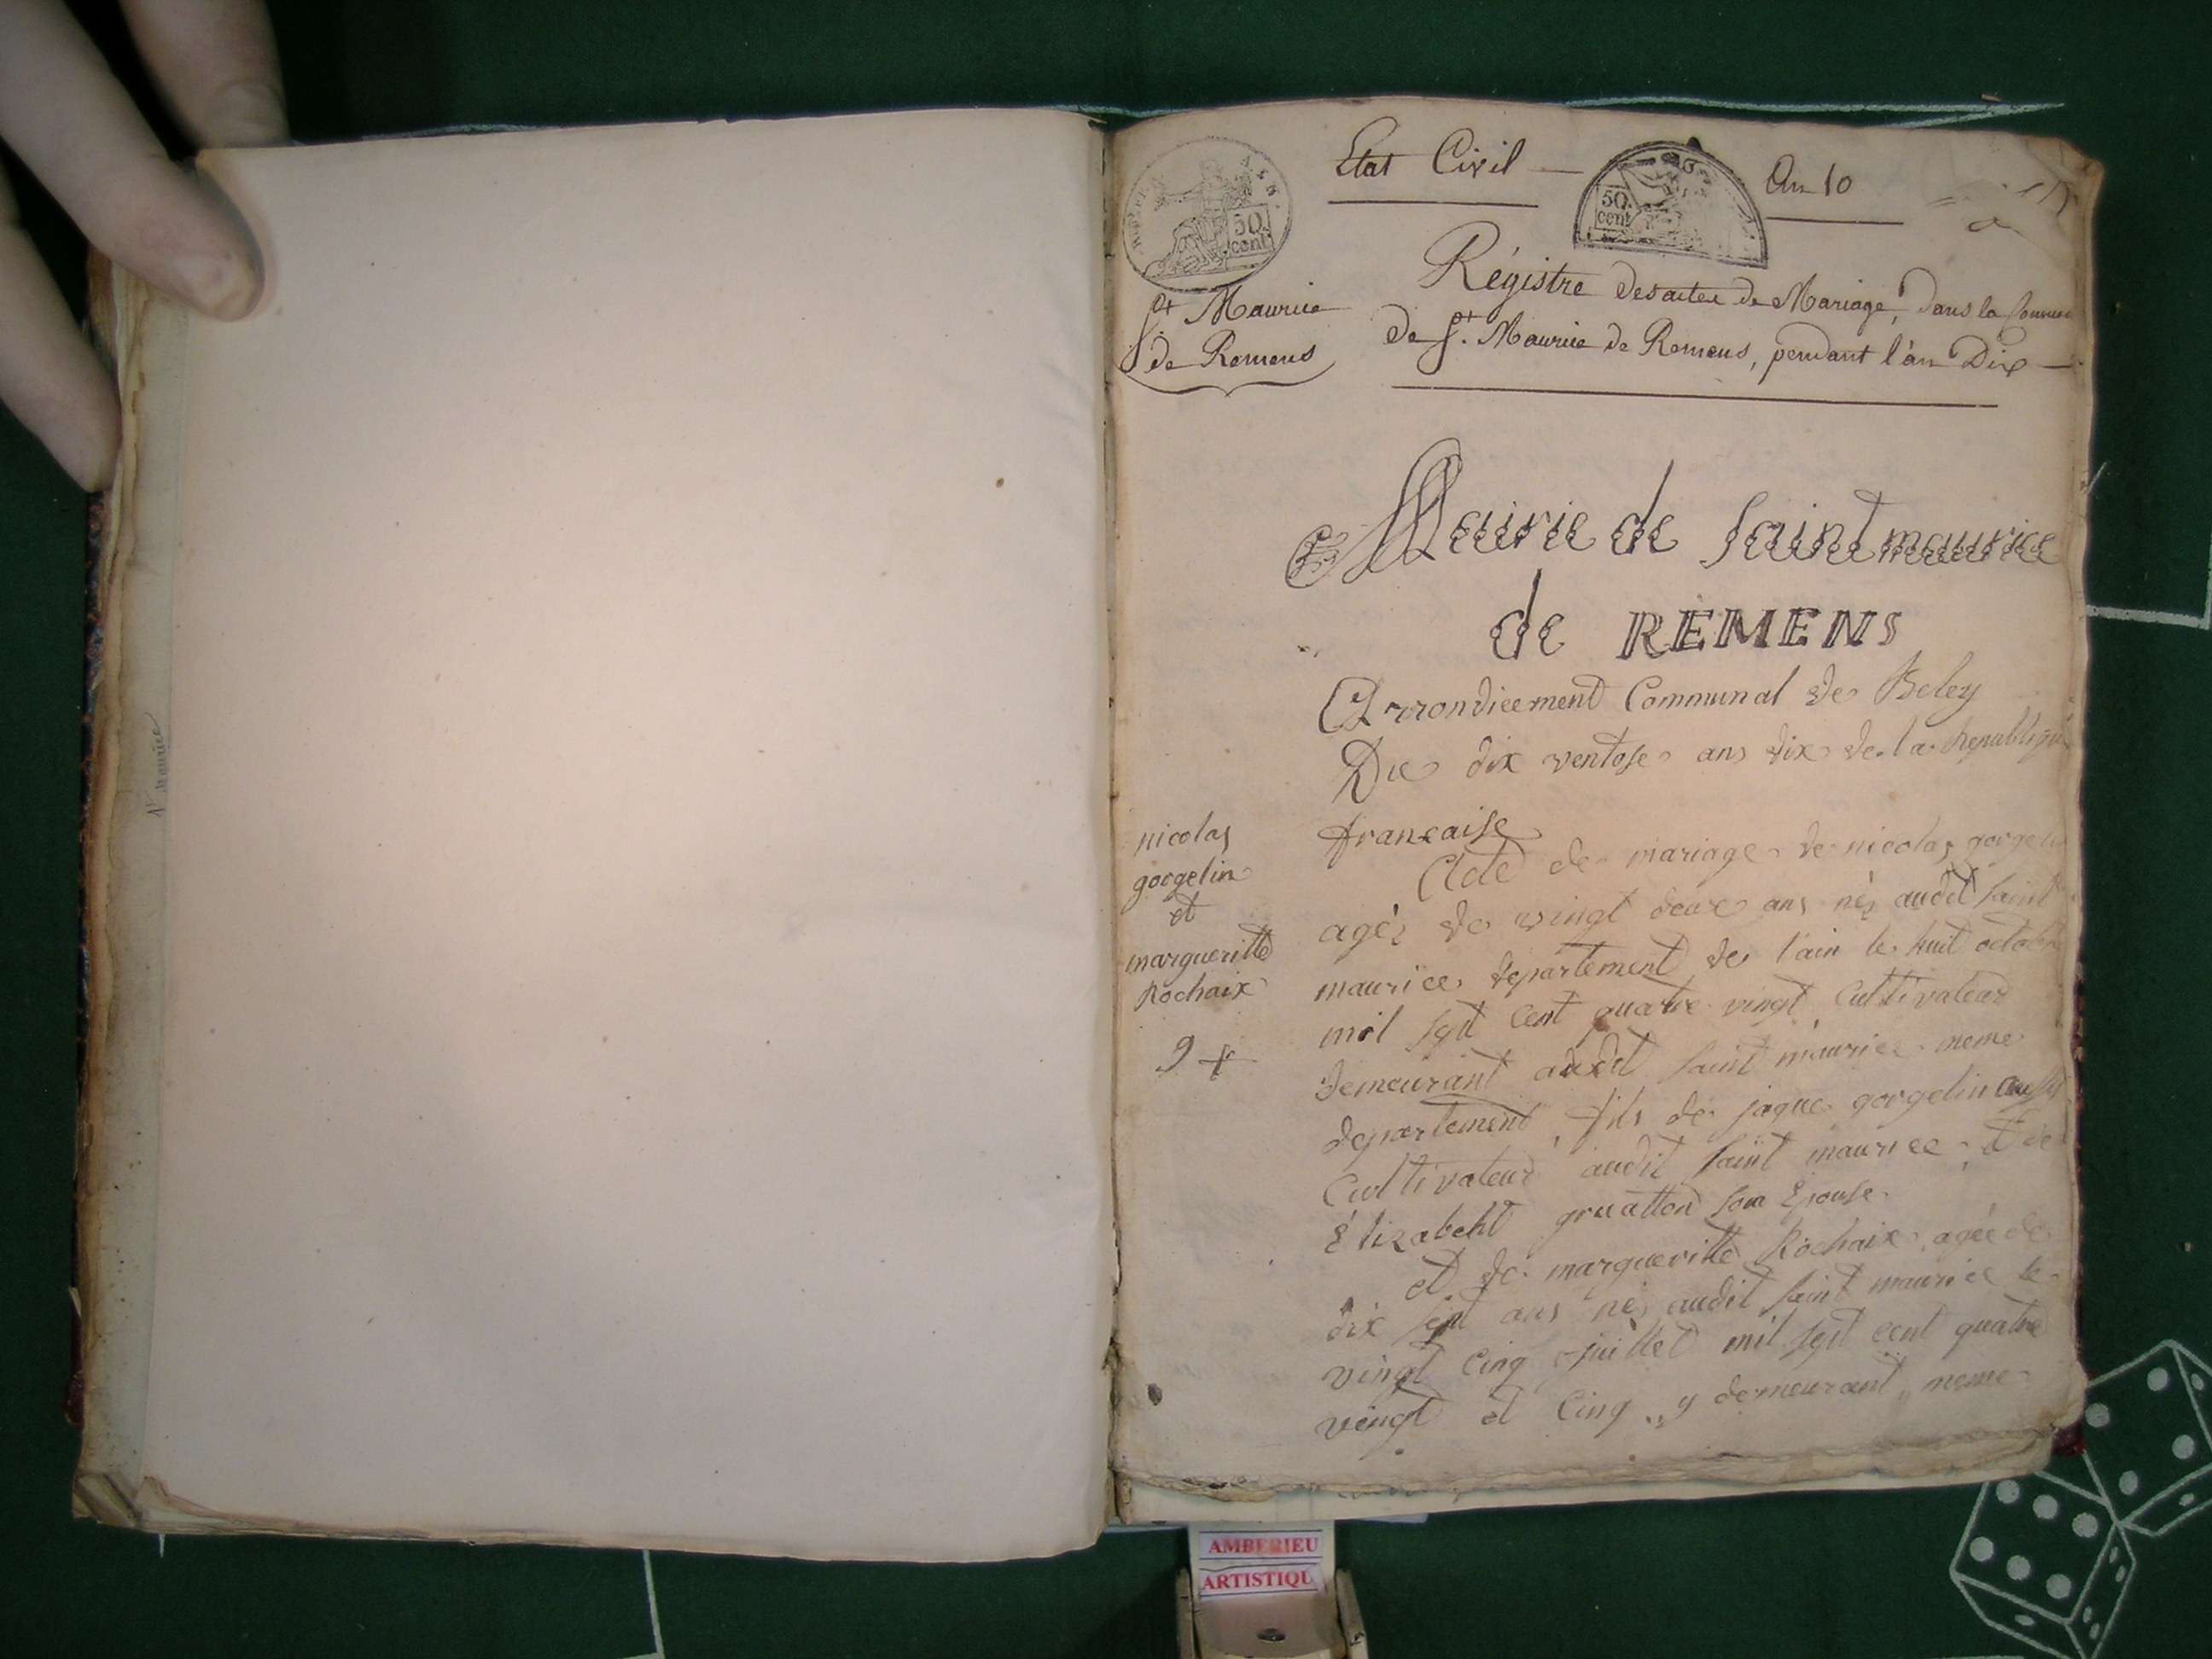 Etat Civil — An 10
50. cent
50. cent
St Maurice
de Remens
Régistre des actes de Mariage, dans la Commune
de St. Maurice de Remens, pendant l'an Dix —
Mairie de saint maurice
de REMENS
Arrondicement Communal de Beley
Du dix ventose ans dix de la Republique
française
nicolas
gorgelin
et
margueritte
Rochaix
9 +
Acte de mariage de nicolas gorgelin
agés de vingt deux ans nés audit saint
maurice, departement de l'ain le huit octobre
mil sept cent quatre vingt Cultivateur
demeurant audit saint maurice meme
departement, fils de jaque gorgelin aussy
Cultivateur audit saint maurice, et de
Élizabeht gruatton son Epouse.
et de margueritte Rochaix agée de
dix sept ans nés audit saint maurice le
vingt Cinq juillet mil sept cent quatre
vingt et Cinq „ y demeurant „ meme
St Maurice
AMBERIEU
ARTISTIQU